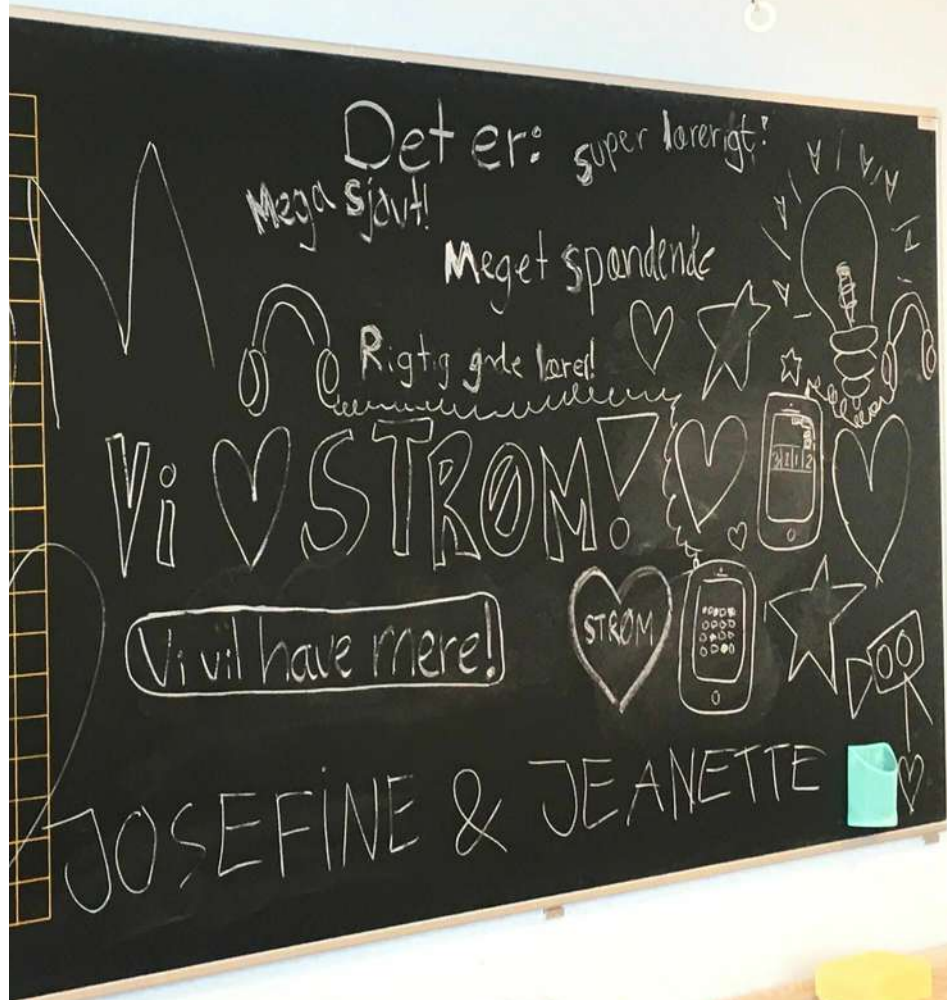 Det er:
super lærerigt!
Mega sjovt!
Meget spændende
Rigtig gode lærer!
Vi STRØM!
3212
Vi vil have mere!
STRØM
JOSEFINE & JEANETTE